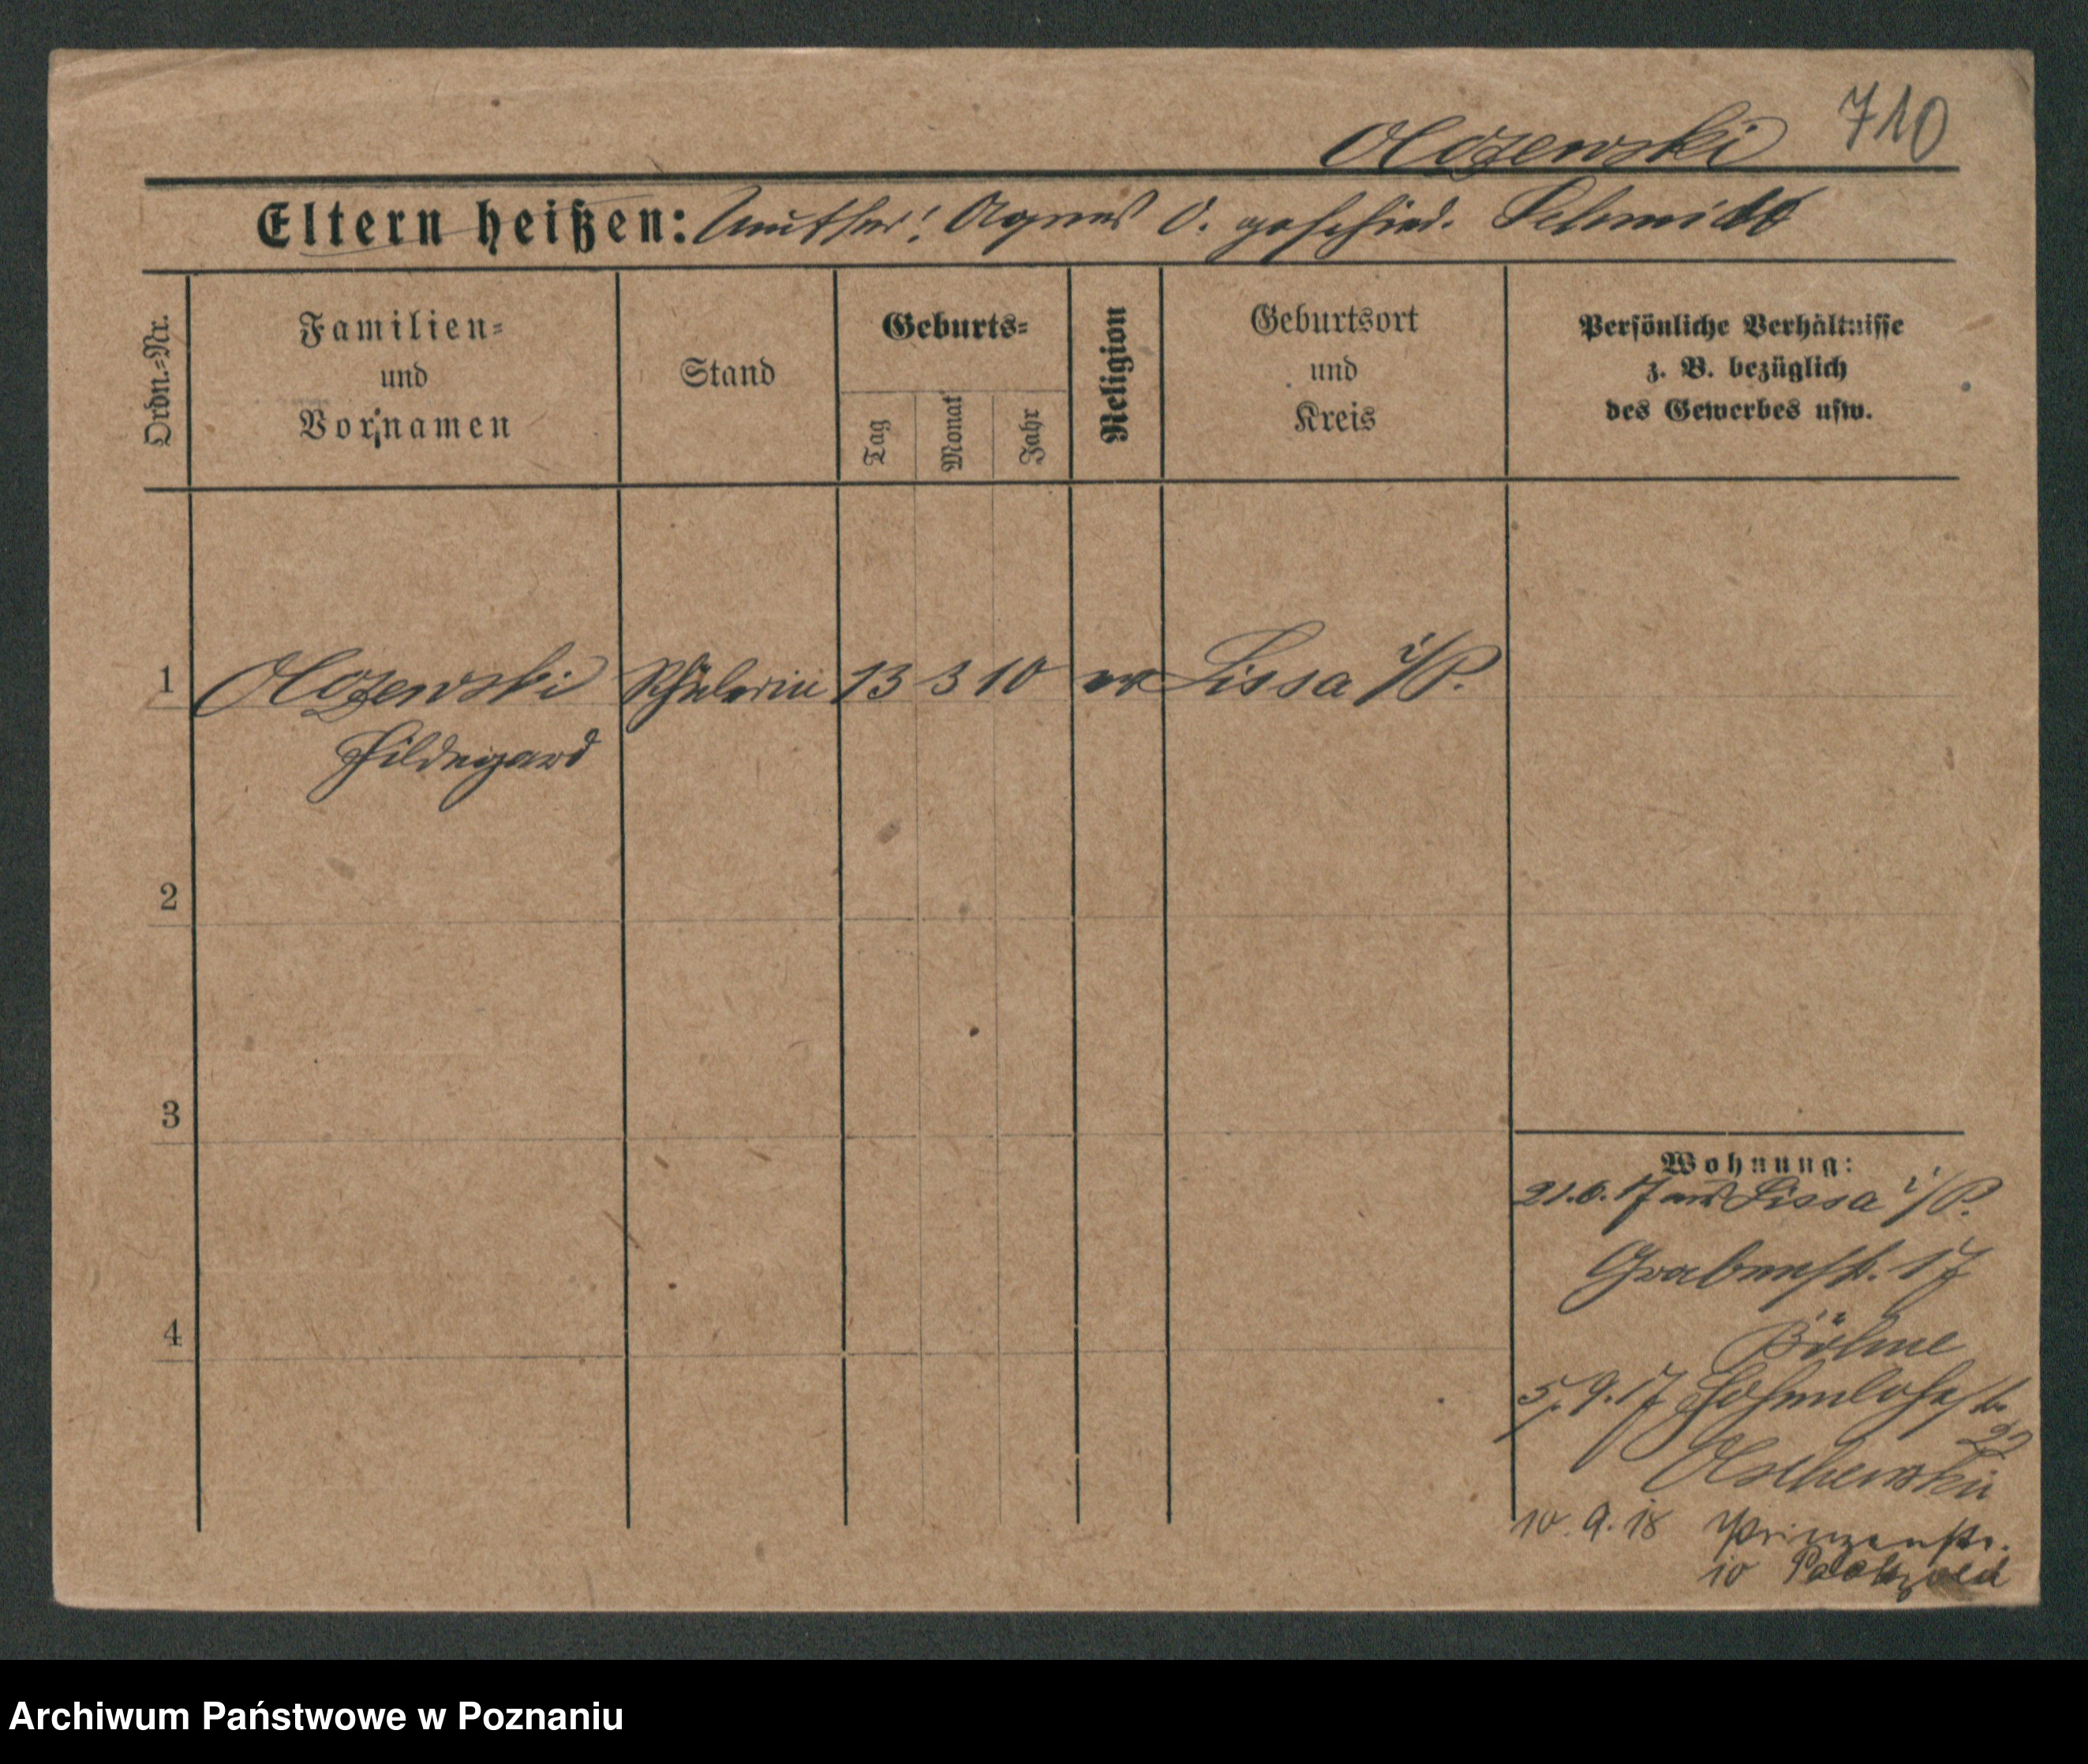 Olczewski 710
Eltern heißen: Mutter! Agnes O. geschied. Schmidt
Ordn.-Nr.
Familien-
und
Vornamen
Stand
Geburts-
Tag
Monat
Jahr
Religion
Geburtsort
und
Kreis
Persönliche Verhältnisse
z. B. bezüglich
des Gewerbes usw.
1 Schülerin 13 3 10 Lissa i/P.
Hildegard
2
3
4
Wohnung:
21.6.17 aus Lissa i/P.
Grabenstr. 17
Böhme
5.9.17 Hohenlohestr.
10.9.18 Prinzenstr.
10
Archiwum Państwowe w Poznaniu